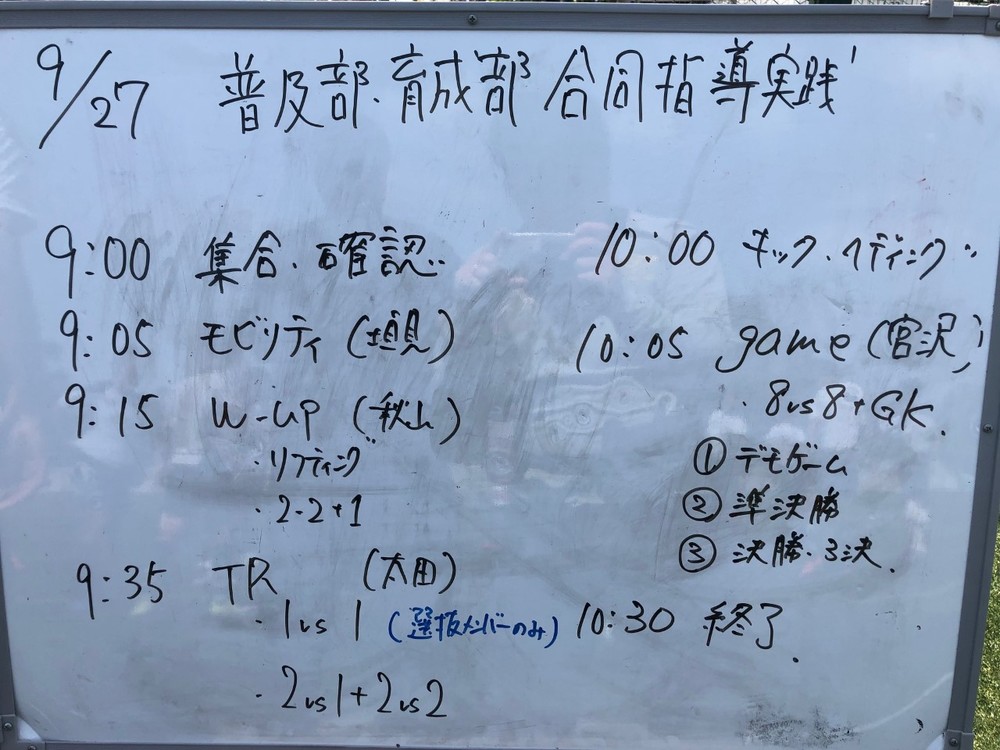 9/27 普及部・育成部 合同指導実践
9:00 集合・確認
9:05 モビリティ (逸見)
9:15 W-up (秋山)
・リフティング
・2-2+1
9:35 TR (太田)
・1vs1 (選抜メンバーのみ)
・2vs1+2vs2
10:00 キック・ヘディング
10:05 game (宮沢)
・8vs8+GK.
① デモゲーム
② 準決勝
③ 決勝・3決.
10:30 終了.